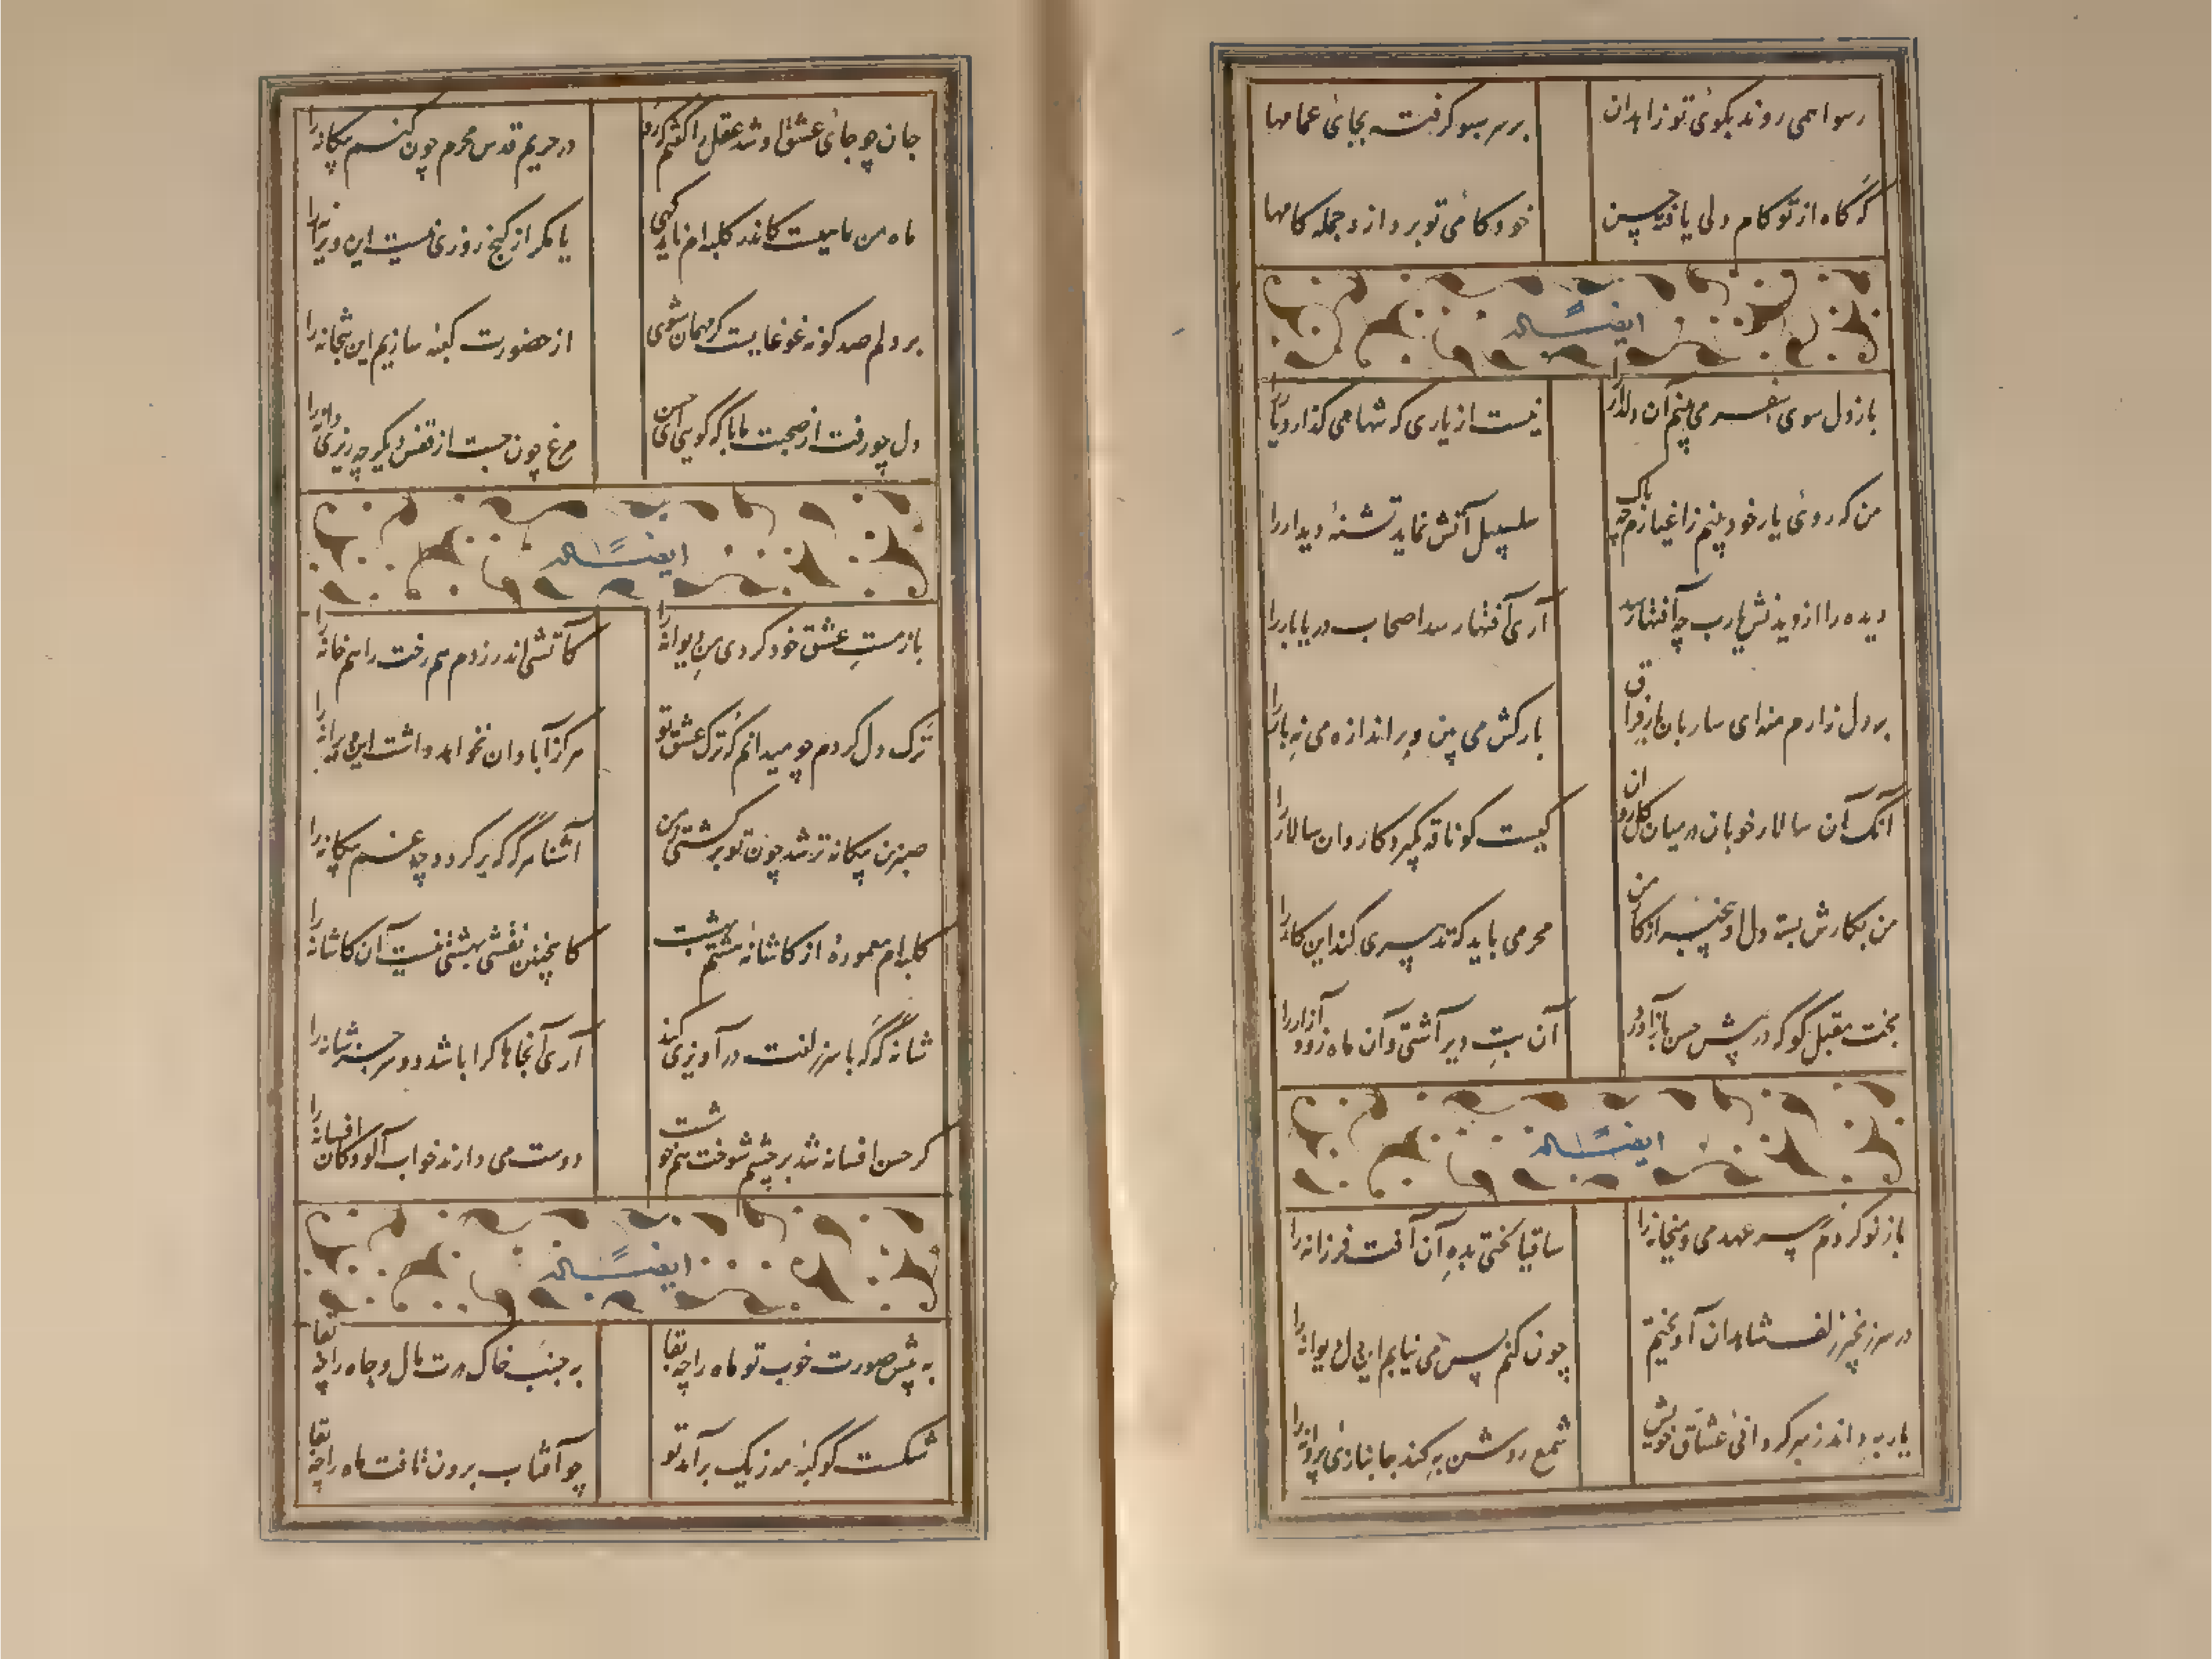 رسوا همی روند بکوی تو زاهدان
بر سر سبو گرفته بجای عمامها
گر گاه از تو کام دلی یافته حسن
خود کامی تو برد ازو جمله کامها
ایضًا له
باز دل سوی سفر می بینم آن دلدار را
نیست از یاری که تنها می گذارد یار را
من که روی یار خود بینم ز اغیارم چه باک
سلسبیل آتش نماید تشنهٔ دیدار را
دیده را از دیدنش یارب چه آفتها رسد
آری آفتها رسد اصحاب دریا بار را
بر دل زارم منه ای ساربان بار فراق
بارکش می بین و بر اندازه می نه بار را
آنک آن سالار خوبان در میان کاروان
کیست کو ناقه گیرد کاروان سالار را
من بکارش بسته دل او بیخبر از کار من
محرمی باید که تدبیری کند این کار را
بخت مقبل گو که در پیش حسن باز آورد
آن بت دیر آشتی و آن ماه زود آزار را
ایضًا له
باز نو کردم سر عهد می و میخانه را
ساقیا لختی بده آن آفت فرزانه را
در سر زنجیر زلف شاهدان آویختیم
چون کنم بس می نیایم این دل دیوانه را
یار به داند ز سر گردانی عشاق خویش
شمع روشن به کند جانبازی پروانه را
جان چو جای عشق او شد عقل را گفتم که رو
در حریم قدس محرم چون کنم بیگانه را
ماه من تا کیست کاندر کلبه ام ناید گهی
یا مگر از گنج روزی نیست این ویرانه را
بر دلم صد گونه غوغاییست گر مهمان شوی
از حضورت کعبه سازیم این بتخانه را
دل چو رفت از صحبت ما باکه گویی ای حسن
مرغ چون جست از قفس دیگر چه ریزی دانه را
ایضًا له
باز مست عشق خود کردی من دیوانه را
کاتشی اندر زدم هم رخت را هم خانه را
ترک دل کردم چو میدانم که ترک عشق تو
هرگز آبادان نخواهد داشت این ویرانه را
صبر من بیگانه تر شد چون تو برگشتی ز من
آشنا هرگه که برگردد چه غم بیگانه را
کلبه ام معمورهٔ از کاشانه هشتم بهشت
کاینچنین نقشی بهشتی نیست آن کاشانه را
شانه گرگه با سر زلفت در آویزی کند
آری آنجاها کرا باشد دو سر جز شانه را
گر حسن افسانه شد بر چشم شوخت هم خوشست
دوست می دارند خواب آلودگان افسانه را
ایضًا له
به پیش صورت خوب تو ماه را چه بقا
به جنب خاک درت مال و جاه را چه بقا
شکست کوکبهٔ مه ز یک برآمد تو
چو آفتاب برون تافت ماه را چه بقا